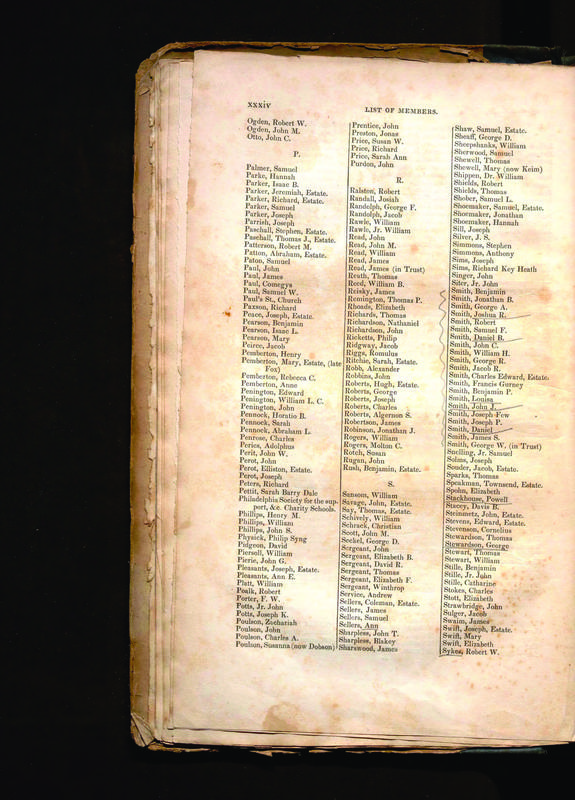 xxxiv
LIST OF MEMBERS.
Ogden, Robert W.
Ogden, John M.
Otto, John C.
P.
Palmer, Samuel
Parke, Hannah
Parker, Isaac B.
Parker, Jeremiah, Estate.
Parker, Richard, Estate.
Parker, Samuel
Parker, Joseph
Parrish, Joseph
Paschall, Stephen, Estate.
Paschall, Thomas J., Estate.
Patterson, Robert M.
Patton, Abraham, Estate.
Paton, Samuel
Paul, John
Paul, James
Paul, Comegys
Paul, Samuel W.
Paul's St., Church
Paxson, Richard
Peace, Joseph, Estate.
Pearson, Benjamin
Pearson, Isaac L.
Pearson, Mary
Peirce, Jacob
Pemberton, Henry
Pemberton, Mary, Estate, (late
Fox)
Pemberton, Rebecca C.
Pemberton, Anne
Penington, Edward
Penington, William L. C.
Penington, John
Pennock, Horatio B.
Pennock, Sarah
Pennock, Abraham L.
Penrose, Charles
Perics, Adolphus
Perit, John W.
Perot, John
Perot, Elliston, Estate.
Perot, Joseph
Peters, Richard
Pettit, Sarah Barry Dale
Philadelphia Society for the sup-
port, &c. Charity Schools.
Phillips, Henry M.
Phillips, William
Phillips, John S.
Physick, Philip Syng
Pidgeon, David
Piersoll, William
Pierie, John G.
Pleasants, Joseph, Estate.
Pleasants, Ann E.
Platt, William
Poalk, Robert
Porter, F. W.
Potts, Jr. John
Potts, Joseph K.
Poulson, Zachariah
Poulson, John
Poulson, Charles A.
Poulson, Susanna (now Dobson)
Prentice, John
Preston, Jonas
Price, Susan W.
Price, Richard
Price, Sarah Ann
Purdon, John
R.
Ralston, Robert
Randall, Josiah
Randolph, George F.
Randolph, Jacob
Rawle, William
Rawle, Jr. William
Read, John
Read, John M.
Read, William
Read, James
Read, James (in Trust)
Reath, Thomas
Reed, William B.
Reisky, James
Remington, Thomas P.
Rhoads, Elizabeth
Richards, Thomas
Richardson, Nathaniel
Richardson, John
Ricketts, Philip
Ridgway, Jacob
Riggs, Romulus
Ritchie, Sarah, Estate.
Robb, Alexander
Robbins, John
Roberts, Hugh, Estate.
Roberts, George
Roberts, Joseph
Roberts, Charles
Roberts, Algernon S.
Robertson, James
Robinson, Jonathan J.
Rogers, William
Rogers, Molton C.
Rotch, Susan
Rugan, John
Rush, Benjamin, Estate.
S.
Sansom, William
Savage, John, Estate.
Say, Thomas, Estate.
Schively, William
Schrack, Christian
Scott, John M.
Seckel, George D.
Sergeant, John
Sergeant, Elizabeth B.
Sergeant, David R.
Sergeant, Thomas
Sergeant, Elizabeth F.
Sergeant, Winthrop
Service, Andrew
Sellers, Coleman, Estate.
Sellers, James
Sellers, Samuel
Sellers, Ann
Sharpless, John T.
Sharpless, Blakey
Sharswood, James
Shaw, Samuel, Estate.
Sheaff, George D.
Sheepshanks, William
Sherwood, Samuel
Shewell, Thomas
Shewell, Mary (now Keim)
Shippen, Dr. William
Shields, Robert
Shields, Thomas
Shober, Samuel L.
Shoemaker, Samuel, Estate.
Shoemaker, Jonathan
Shoemaker, Hannah
Sill, Joseph
Silver, J. S.
Simmons, Stephen
Simmons, Anthony
Sims, Joseph
Sims, Richard Key Heath
Singer, John
Siter, Jr. John
Smith, Benjamin
Smith, Jonathan B.
Smith, George A.
Smith, Joshua R.
Smith, Robert
Smith, Samuel F.
Smith, Daniel B.
Smith, John C.
Smith, William H.
Smith, George R.
Smith, Jacob R.
Smith, Charles Edward, Estate.
Smith, Francis Gurney
Smith, Benjamin P.
Smith, Louisa
Smith, John J.
Smith, Joseph Few
Smith, Joseph P.
Smith, Daniel
Smith, James S.
Smith, George W. (in Trust)
Snelling, Jr. Samuel
Solms, Joseph
Souder, Jacob, Estate.
Sparks, Thomas
Speakman, Townsend, Estate.
Spohn, Elizabeth
Stackhouse, Powell
Stacey, Davis B.
Steinmetz, John, Estate.
Stevens, Edward, Estate.
Stevenson, Cornelius
Stewardson, Thomas
Stewardson, George
Stewart, Thomas
Stewart, William
Stille, Benjamin
Stille, Jr. John
Stille, Catharine
Stokes, Charles
Stott, Elizabeth
Strawbridge, John
Sulger, Jacob
Swaim, James
Swift, Joseph, Estate.
Swift, Mary
Swift, Elizabeth
Sykes, Robert W.